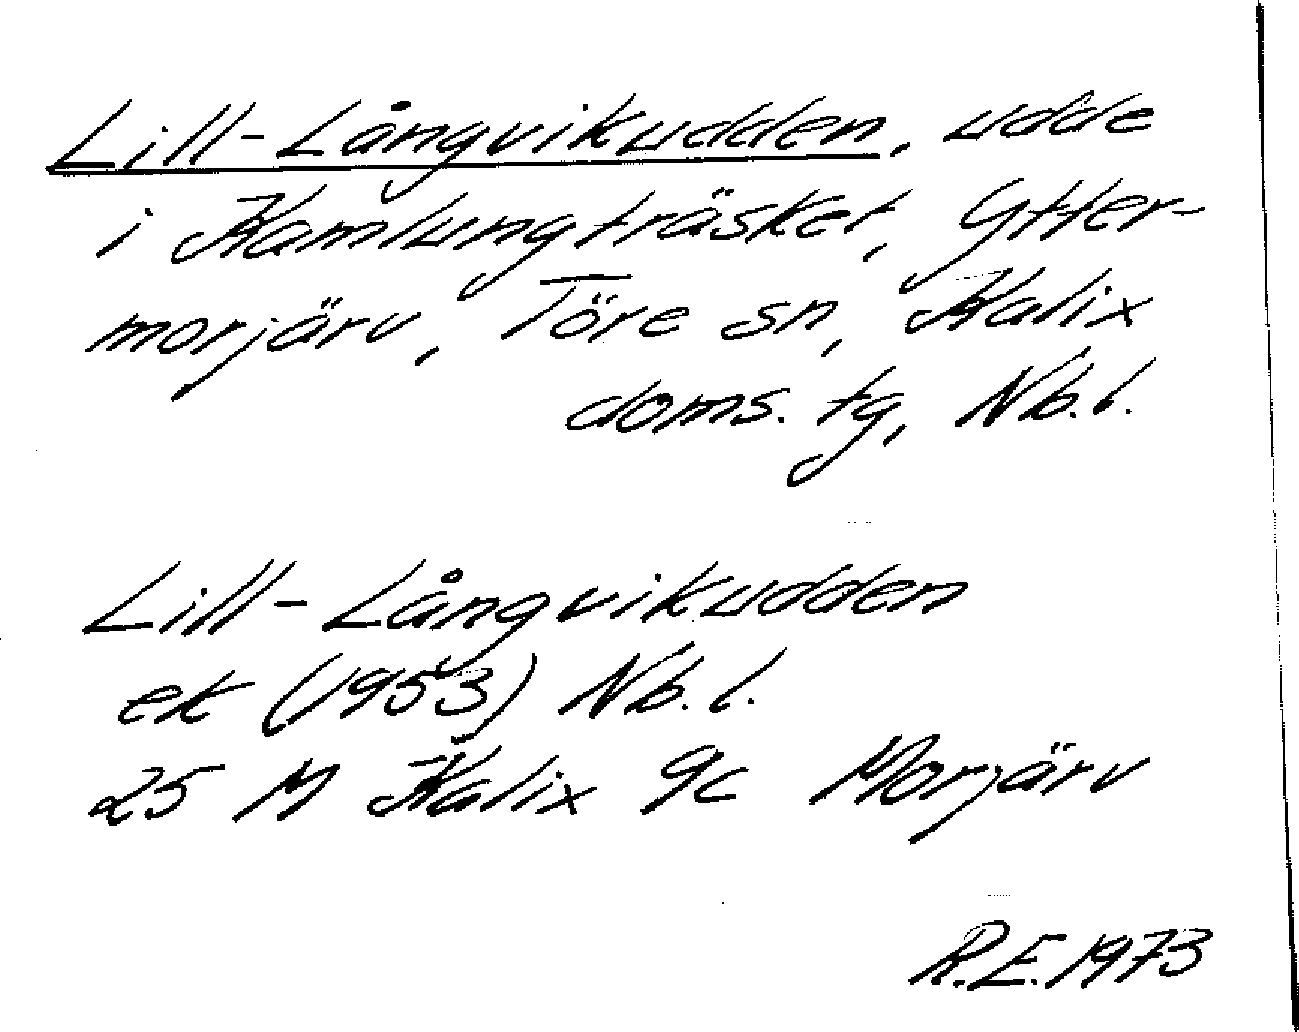 Lill-Långvikudden, udde
i Kamlungträsket, Ytter-
morjärv, Töre sn, Kalix
doms. tg, Nb.l.
Lill-Långvikudden
ek (1953) Nb.l.
25 M Kalix 9c Morjärv
R.E. 1973